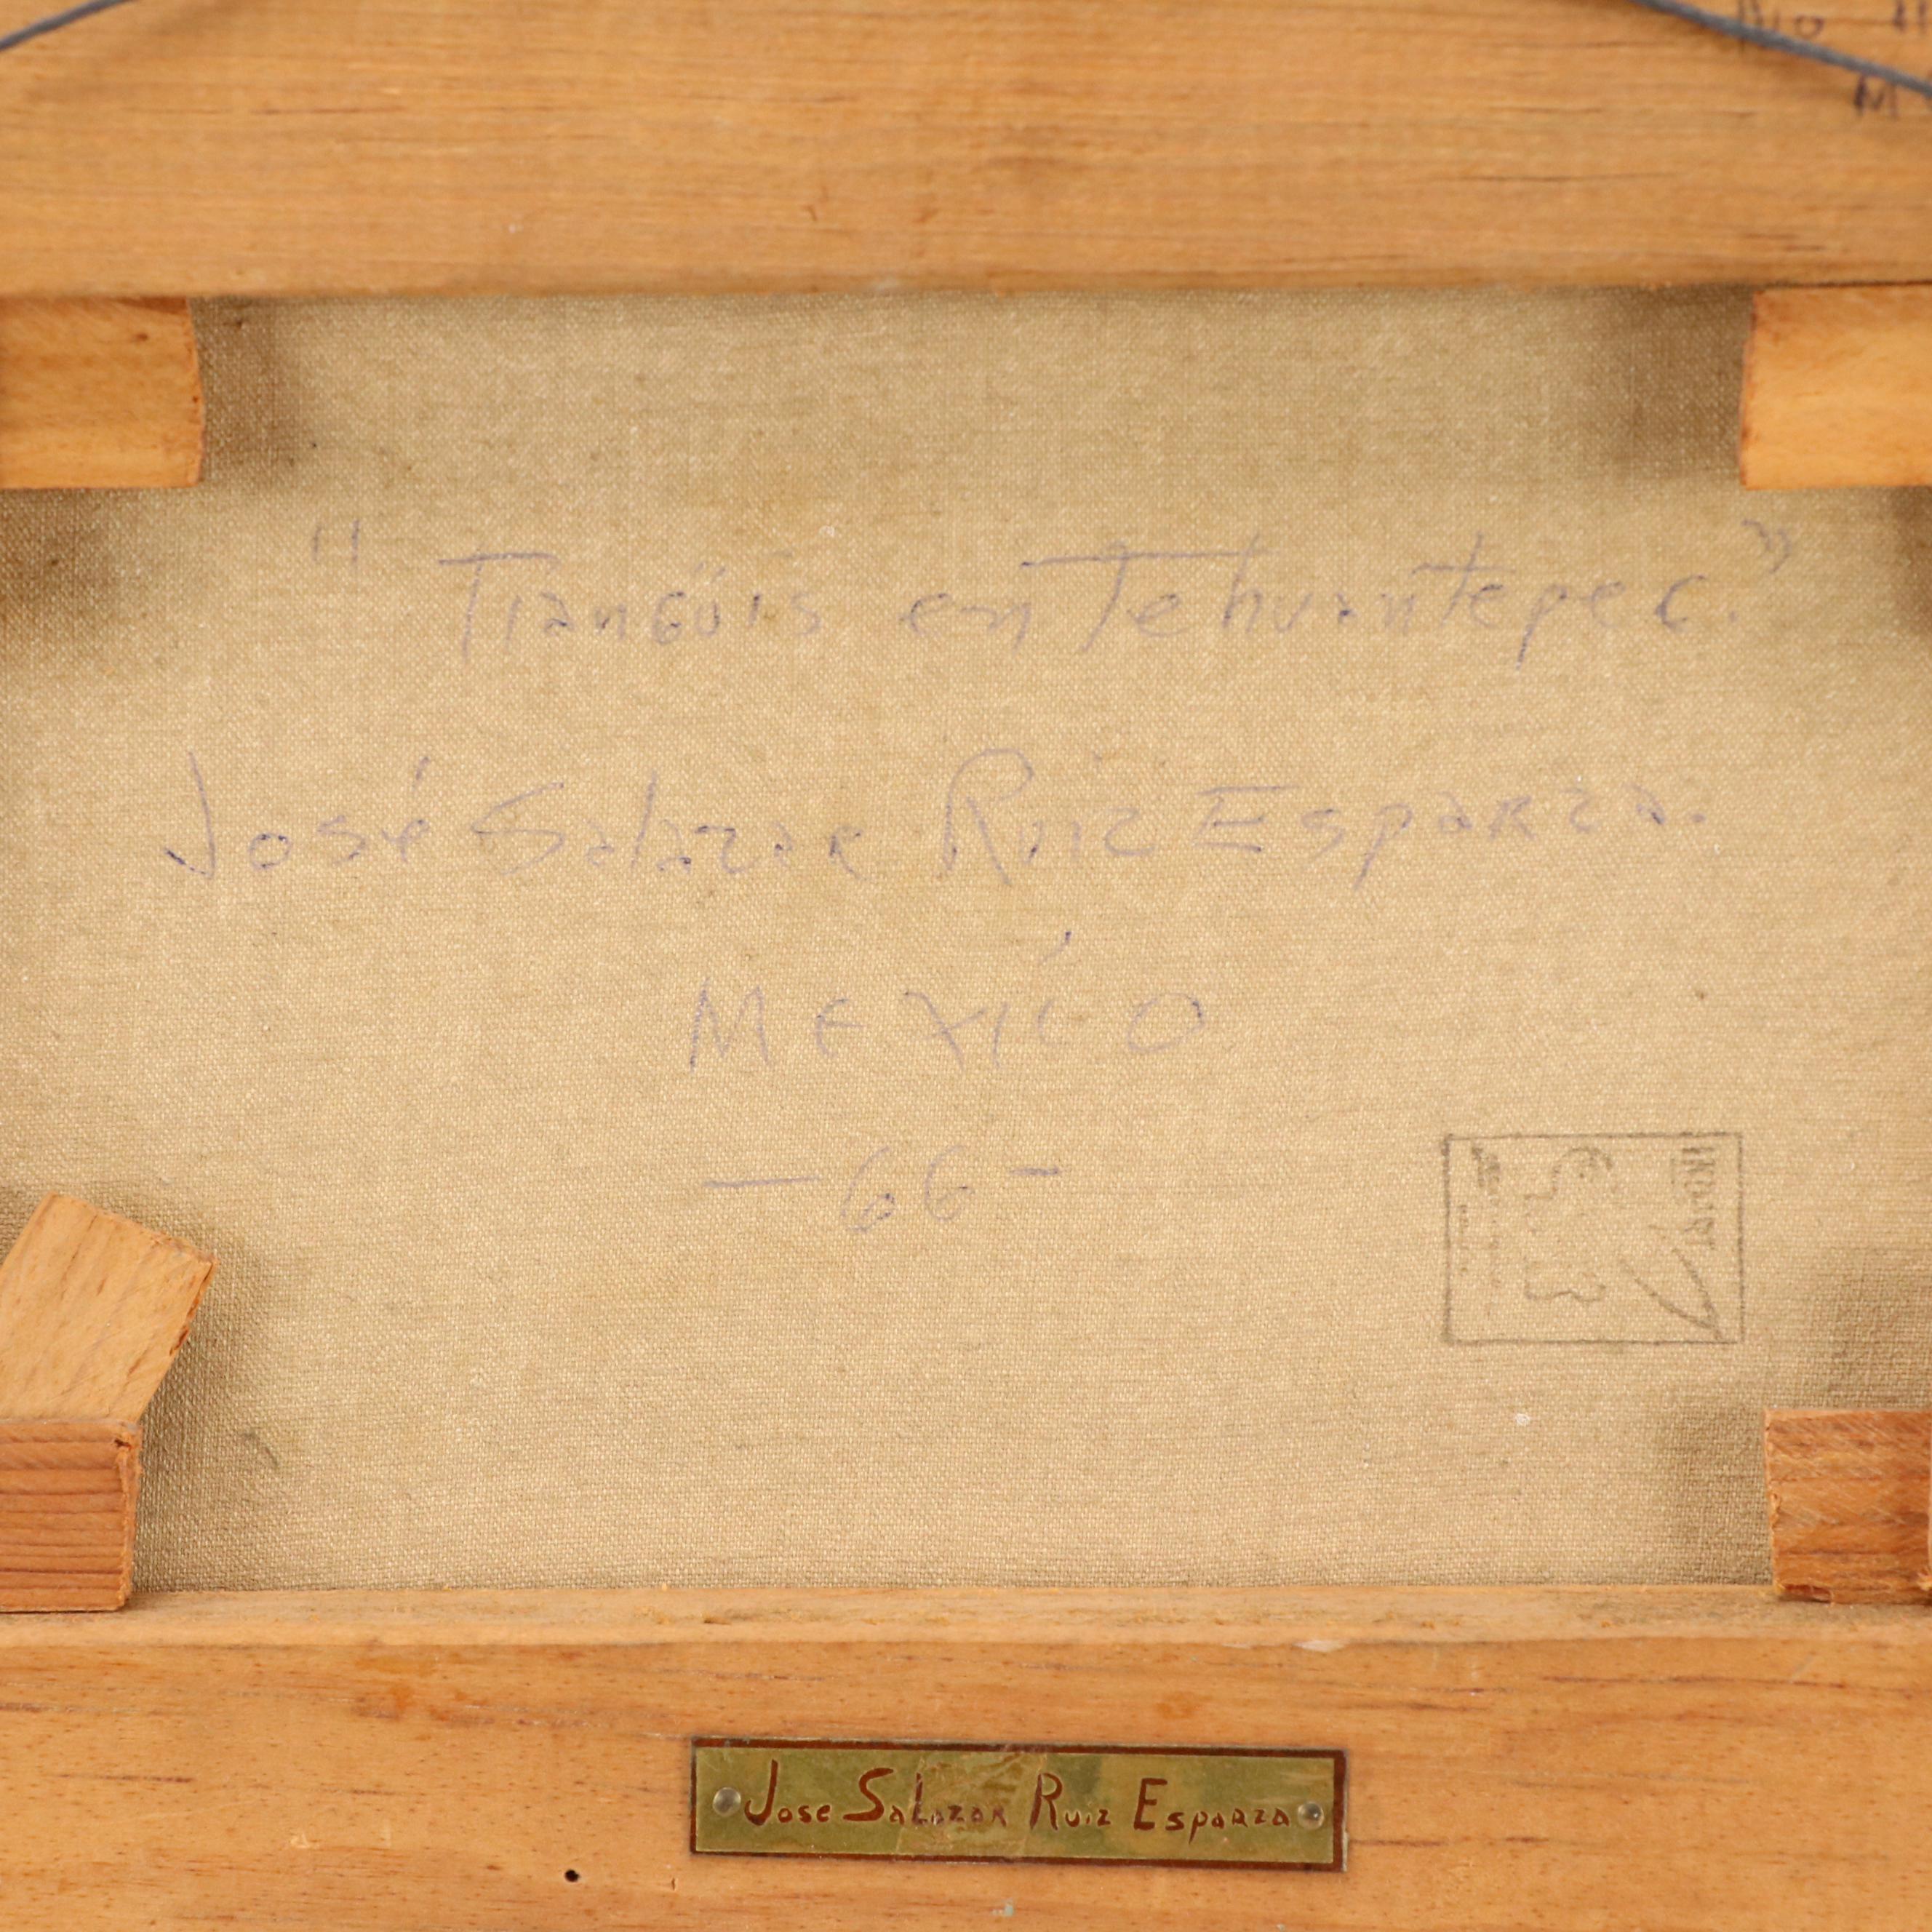 No
M
"Tiangüis en Tehuantepec."
José Salazar Ruiz Esparza.
MEXICO
— 66 —
Jose Salazar Ruiz Esparza